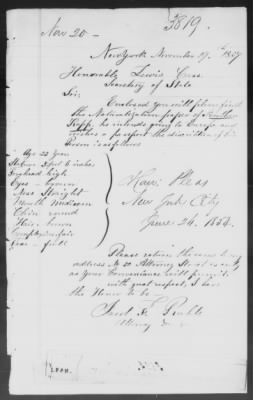 Nov 20 - 3819.
New York November 19th 1857
Honorable Lewis Cass
Secretary of State
Sir:
Enclosed you will please find
the Naturalization papers of
Kopp, he intends going to Europe and
wishes a passport the discription of his
Person is as follows
Age 22 years
Stature 5 feet 6 inches
Forehead high
Eyes - brown
Nose Straight
Mouth medium
Chin round
Hair brown
Complexion fair
Face - full
Pleas
New York City
June 24. 1854.
Please return the same to my
address No 20 Attorney Street as early
as your Convenience will permit.
with great respect, I have
the Honor to be
Jacob